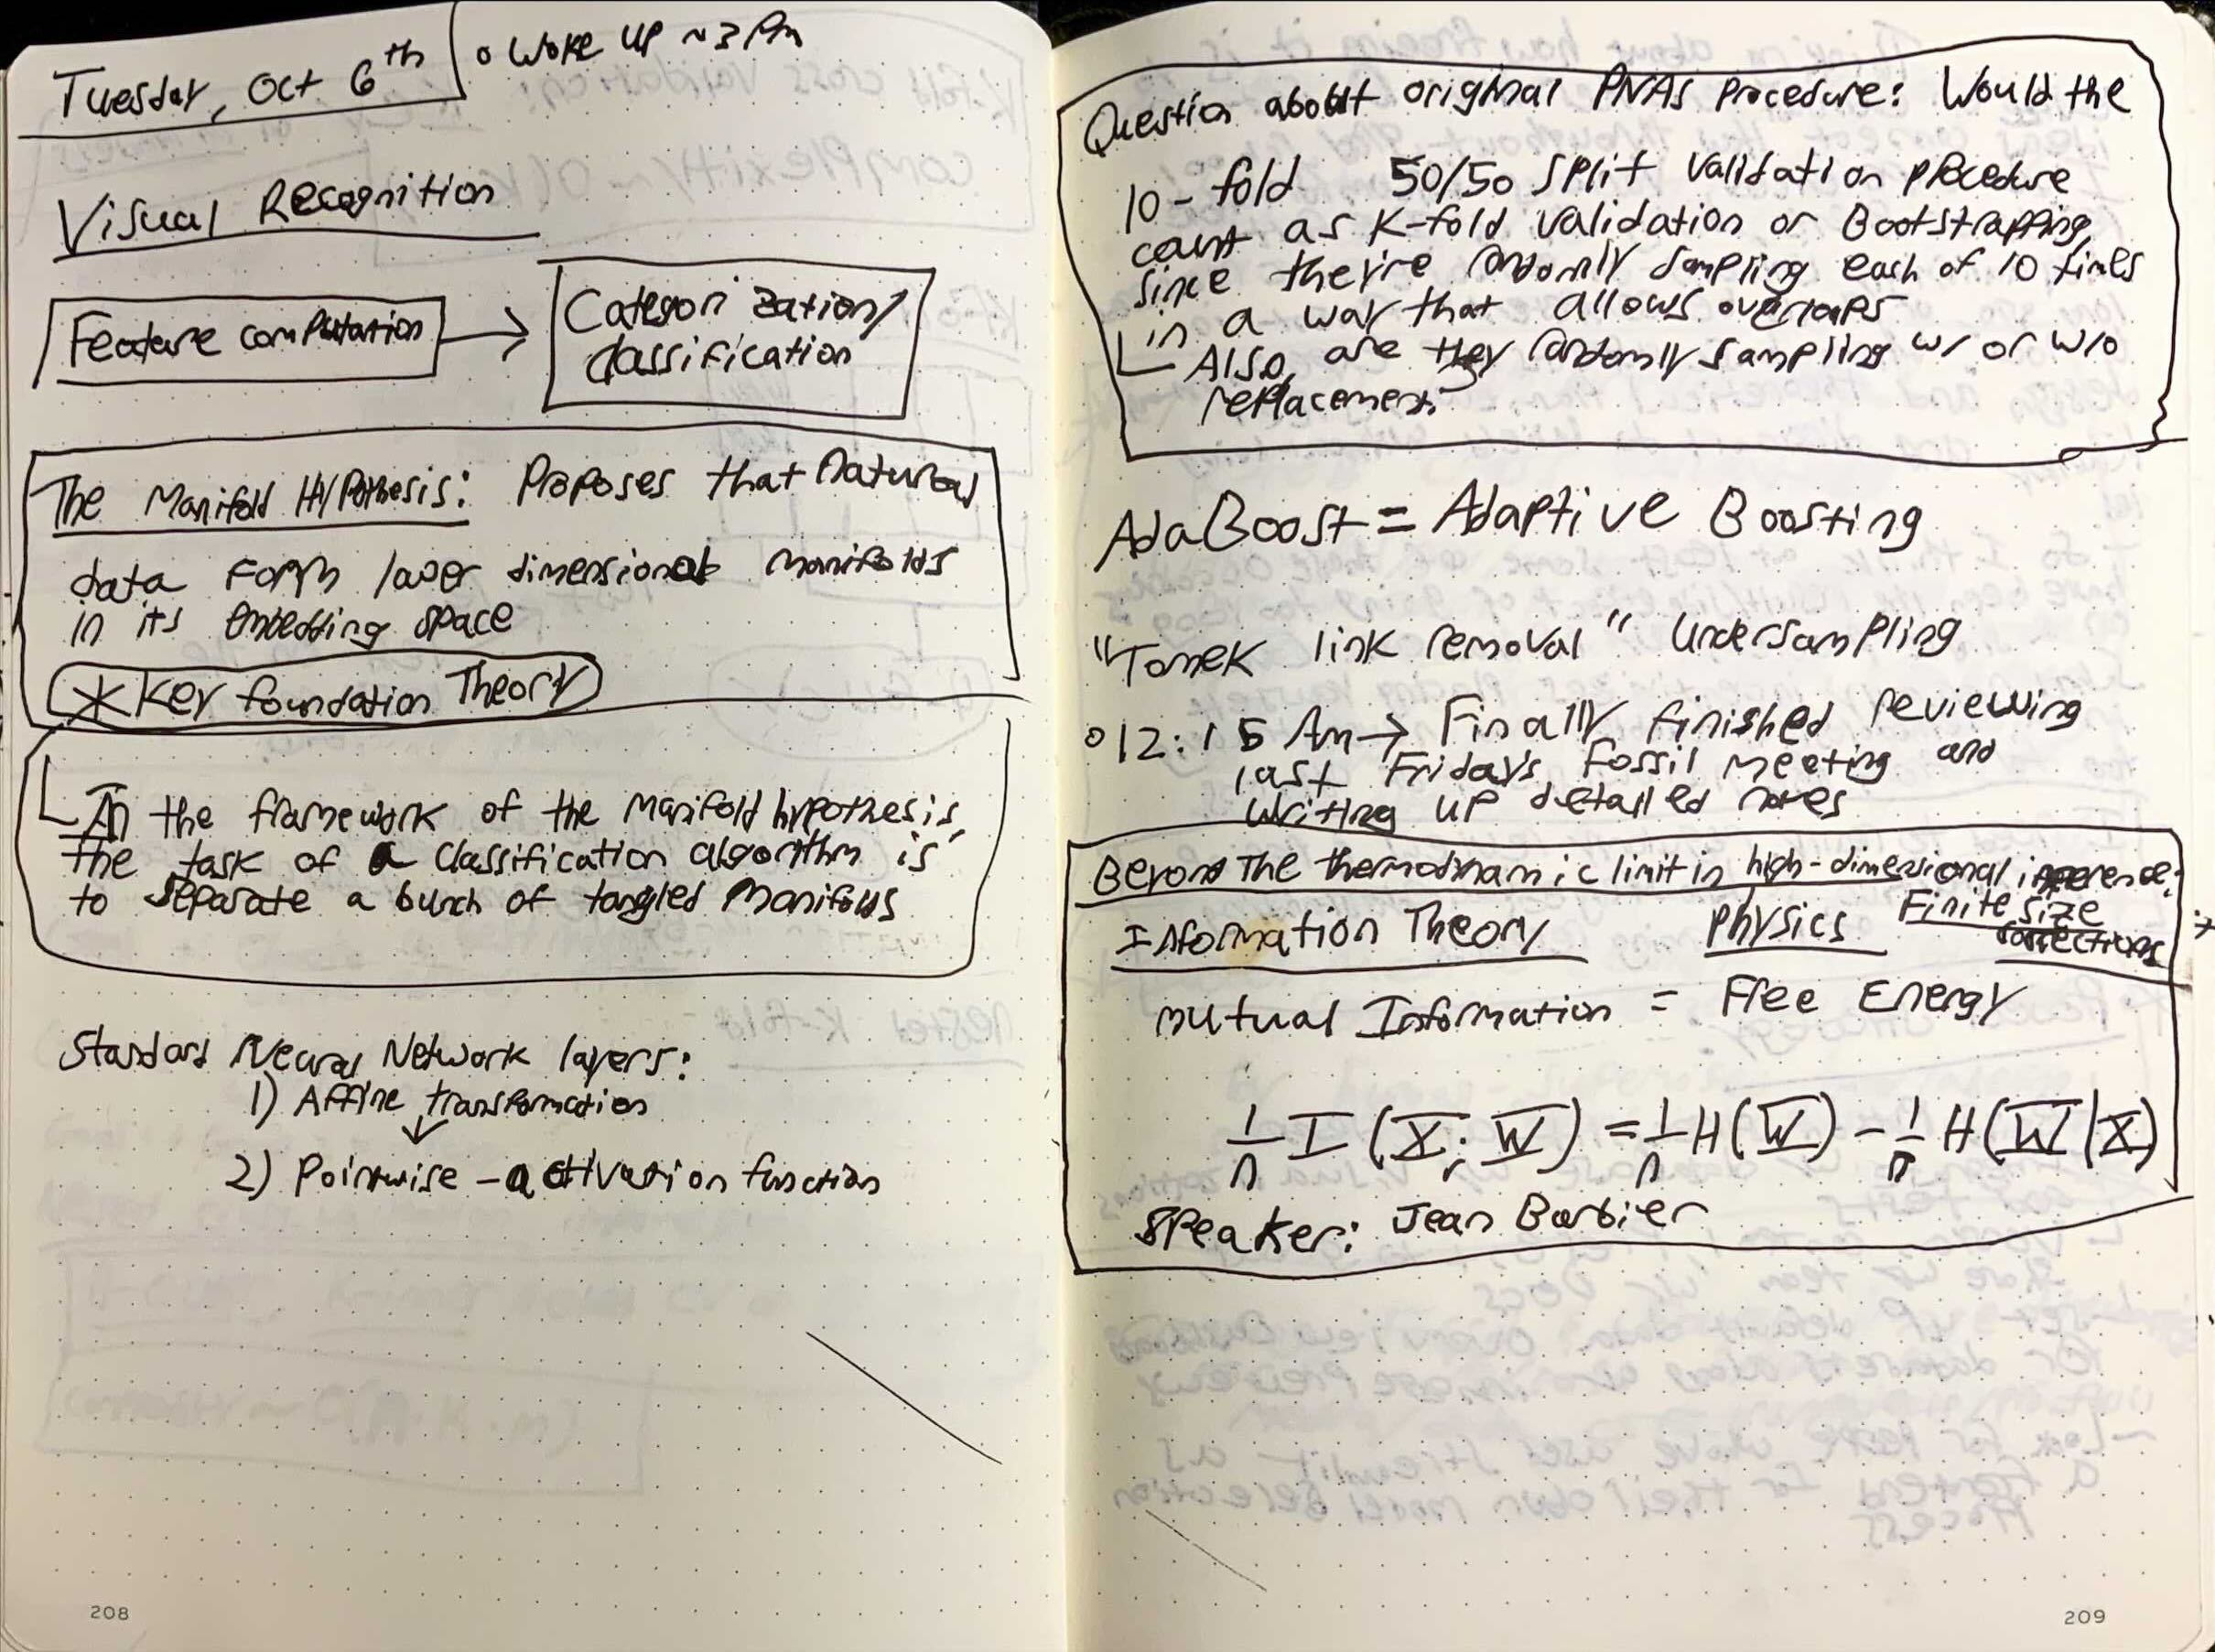 Tuesday, Oct 6th
o Woke up ~3 Pm
Visual Recognition
Feature computation → Categorization/
classification
The Manifold Hypothesis: Proposes that natural
data form lower dimensional manifolds
in its embedding space
* Key foundation Theory
In the framework of the Manifold hypothesis,
the task of a classification algorithm is
to separate a bunch of tangled manifolds
Standard Neural Network layers:
1) Affine transformation
↓
2) Pointwise - activation function
208
Question about original PNAS procedure: Would the
10-fold 50/50 split validation procedure
count as K-fold validation or Bootstrapping,
since they're randomly sampling each of 10 times
in a way that allows overlaps
Also, are they randomly sampling w/ or w/o
replacement?
AdaBoost = Adaptive Boosting
"Tomek link removal" Undersampling
o 12:15 Am → Finally finished reviewing
last Friday's Fossil meeting and
writing up detailed notes
Beyond The thermodynamic limit in high-dimensional inference:
Finite size
corrections
Information Theory Physics
Mutual Information = Free Energy
1/n I(X; W) = 1/n H(W) - 1/n H(W|X)
Speaker: Jean Barbier
209